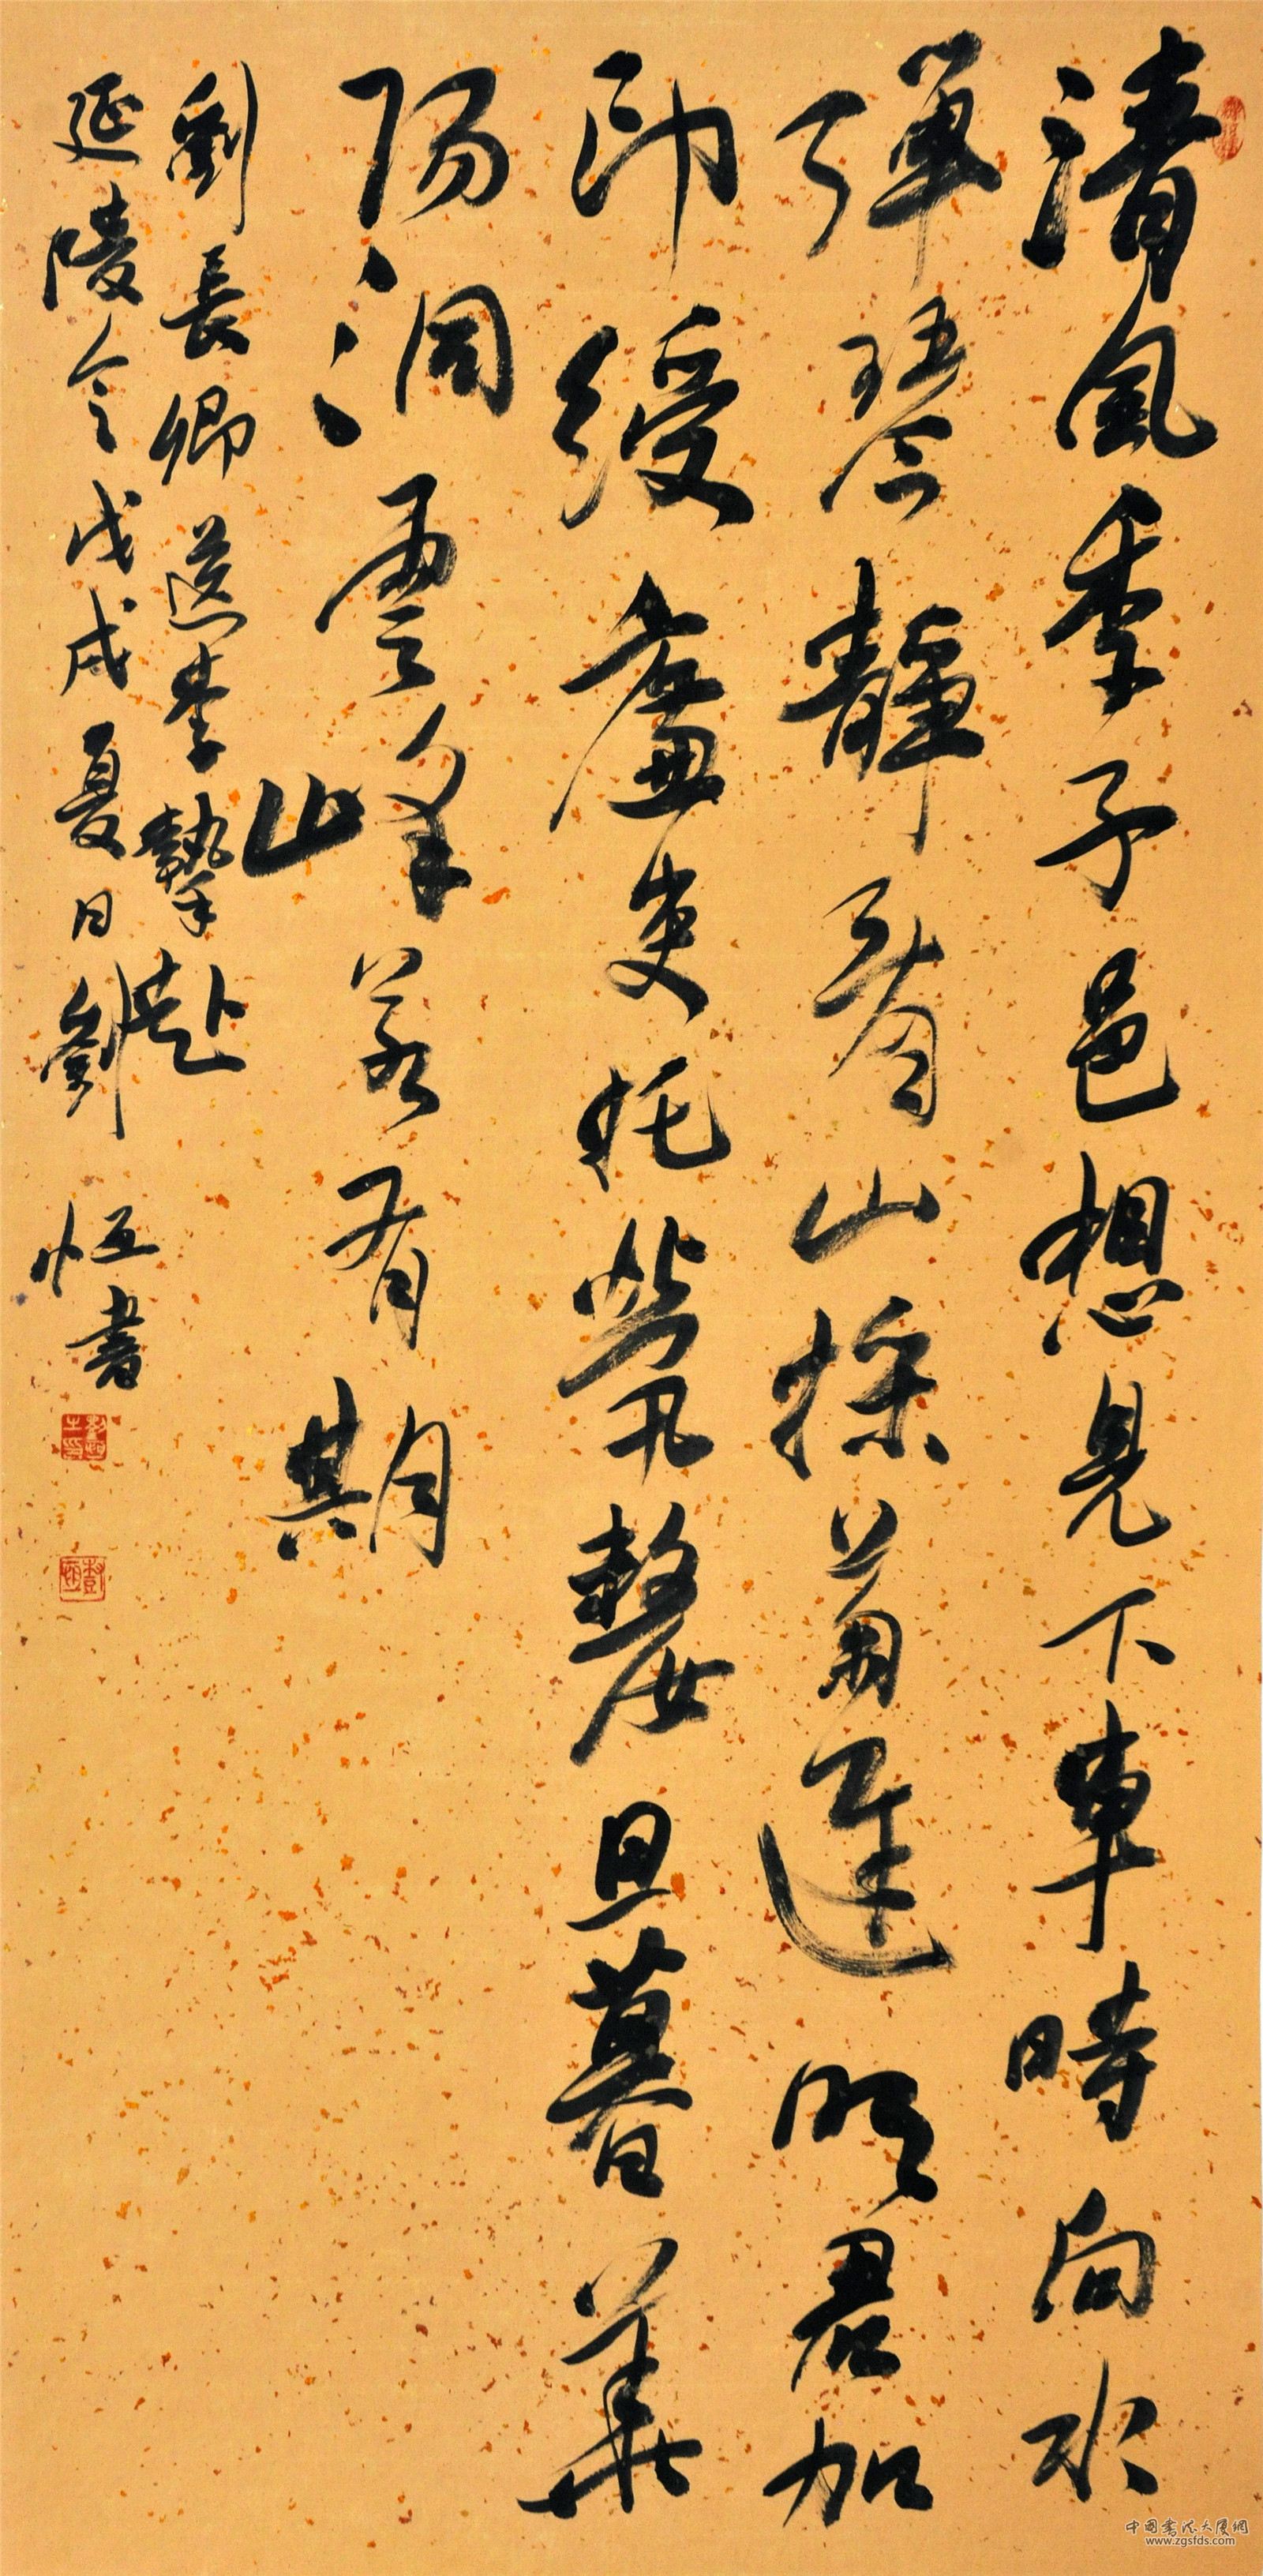 清風季子邑想見下車時向水
彈琴靜看山採菊遲明君加
印綬廉吏托煢嫠旦暮華
陽洞雲峰若有期
劉長卿送李摯赴
延陵令戊戌夏日劉恒書
中國書法大厦網
www.zgsfds.com